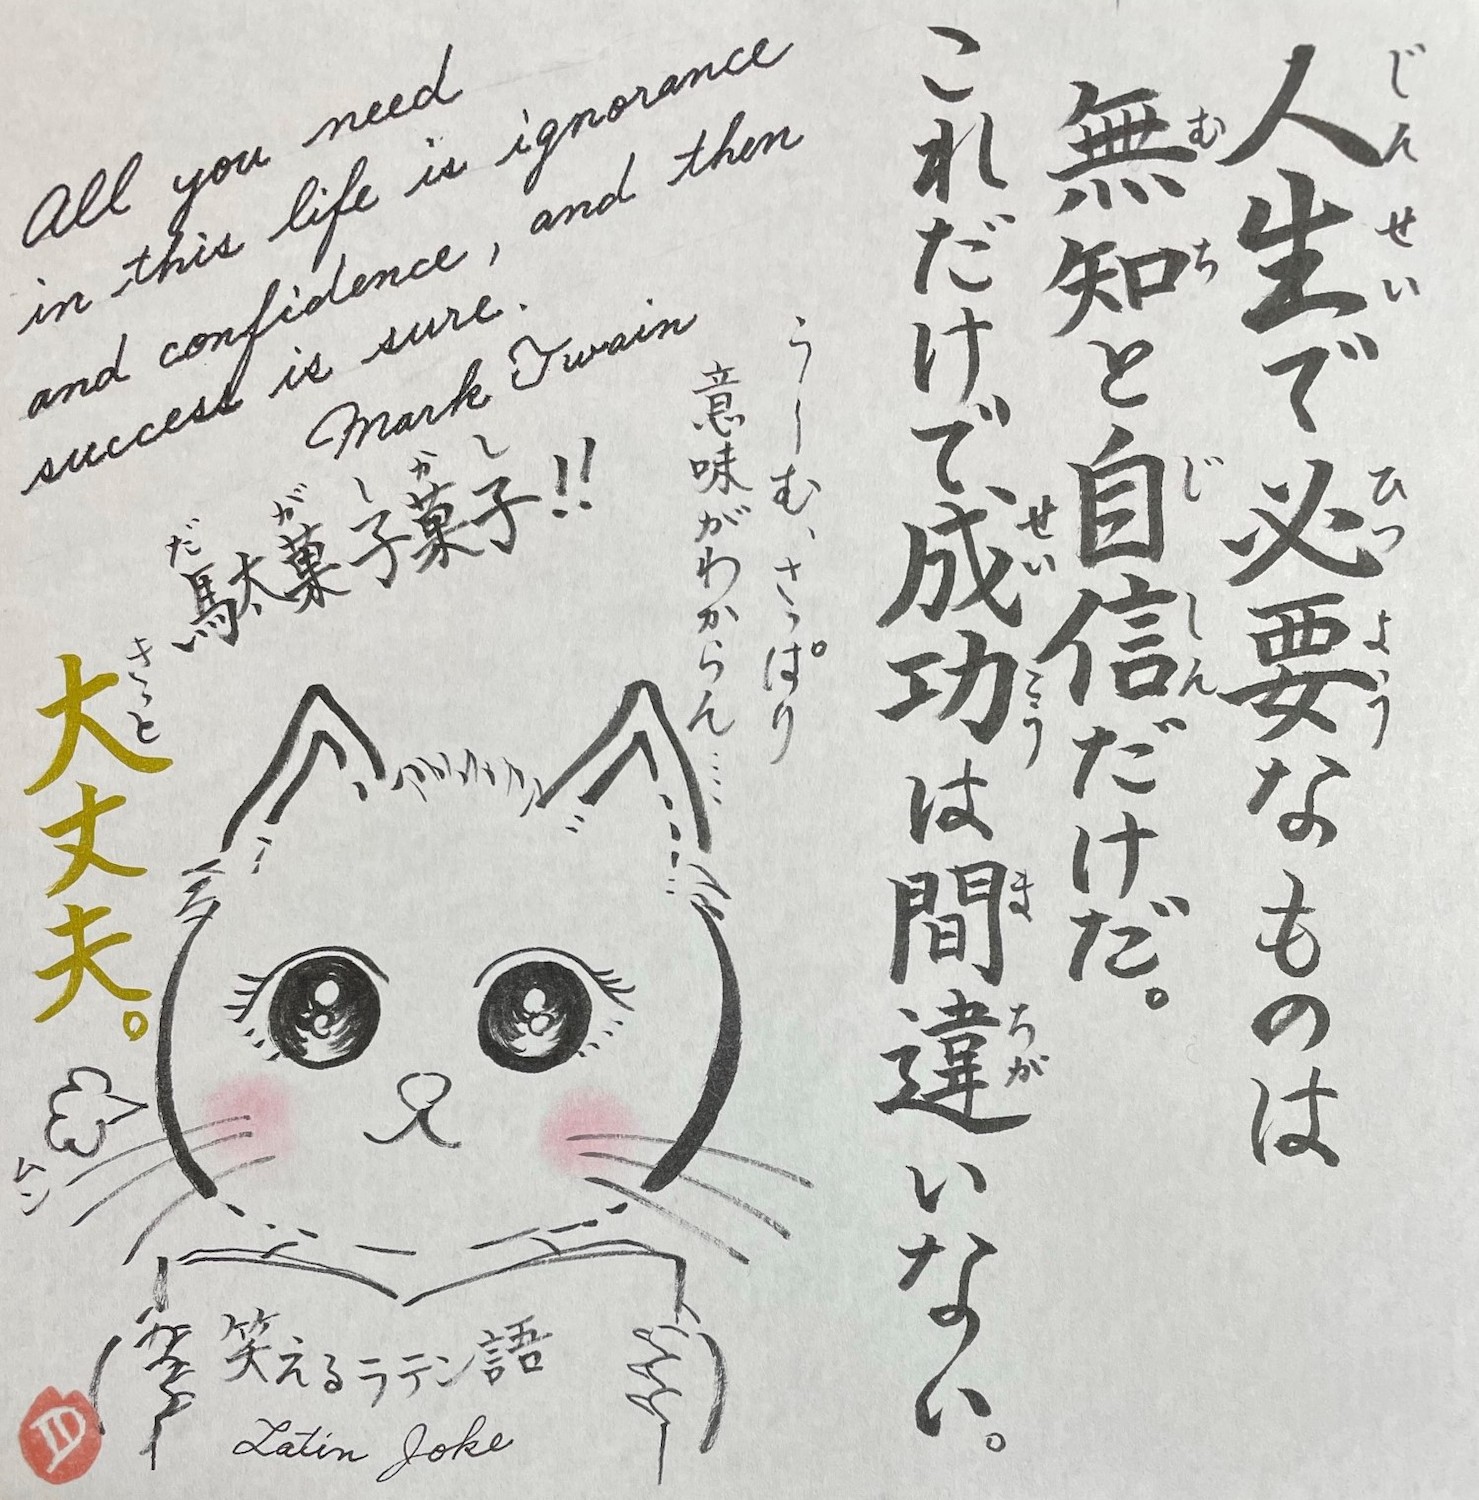 じんせい ひつよう
人生で必要なものは
むち じしん
無知と自信だけだ。
せいこう ま ちが
これだけで、成功は間違いない。
All you need
in this life is ignorance
and confidence, and then
success is sure.
Mark Twain
うーむ、さっぱり
意味がわからん……
だがしかし
駄菓子菓子!!
きっと
大丈夫。
ムン
笑えるラテン語
Latin Joke